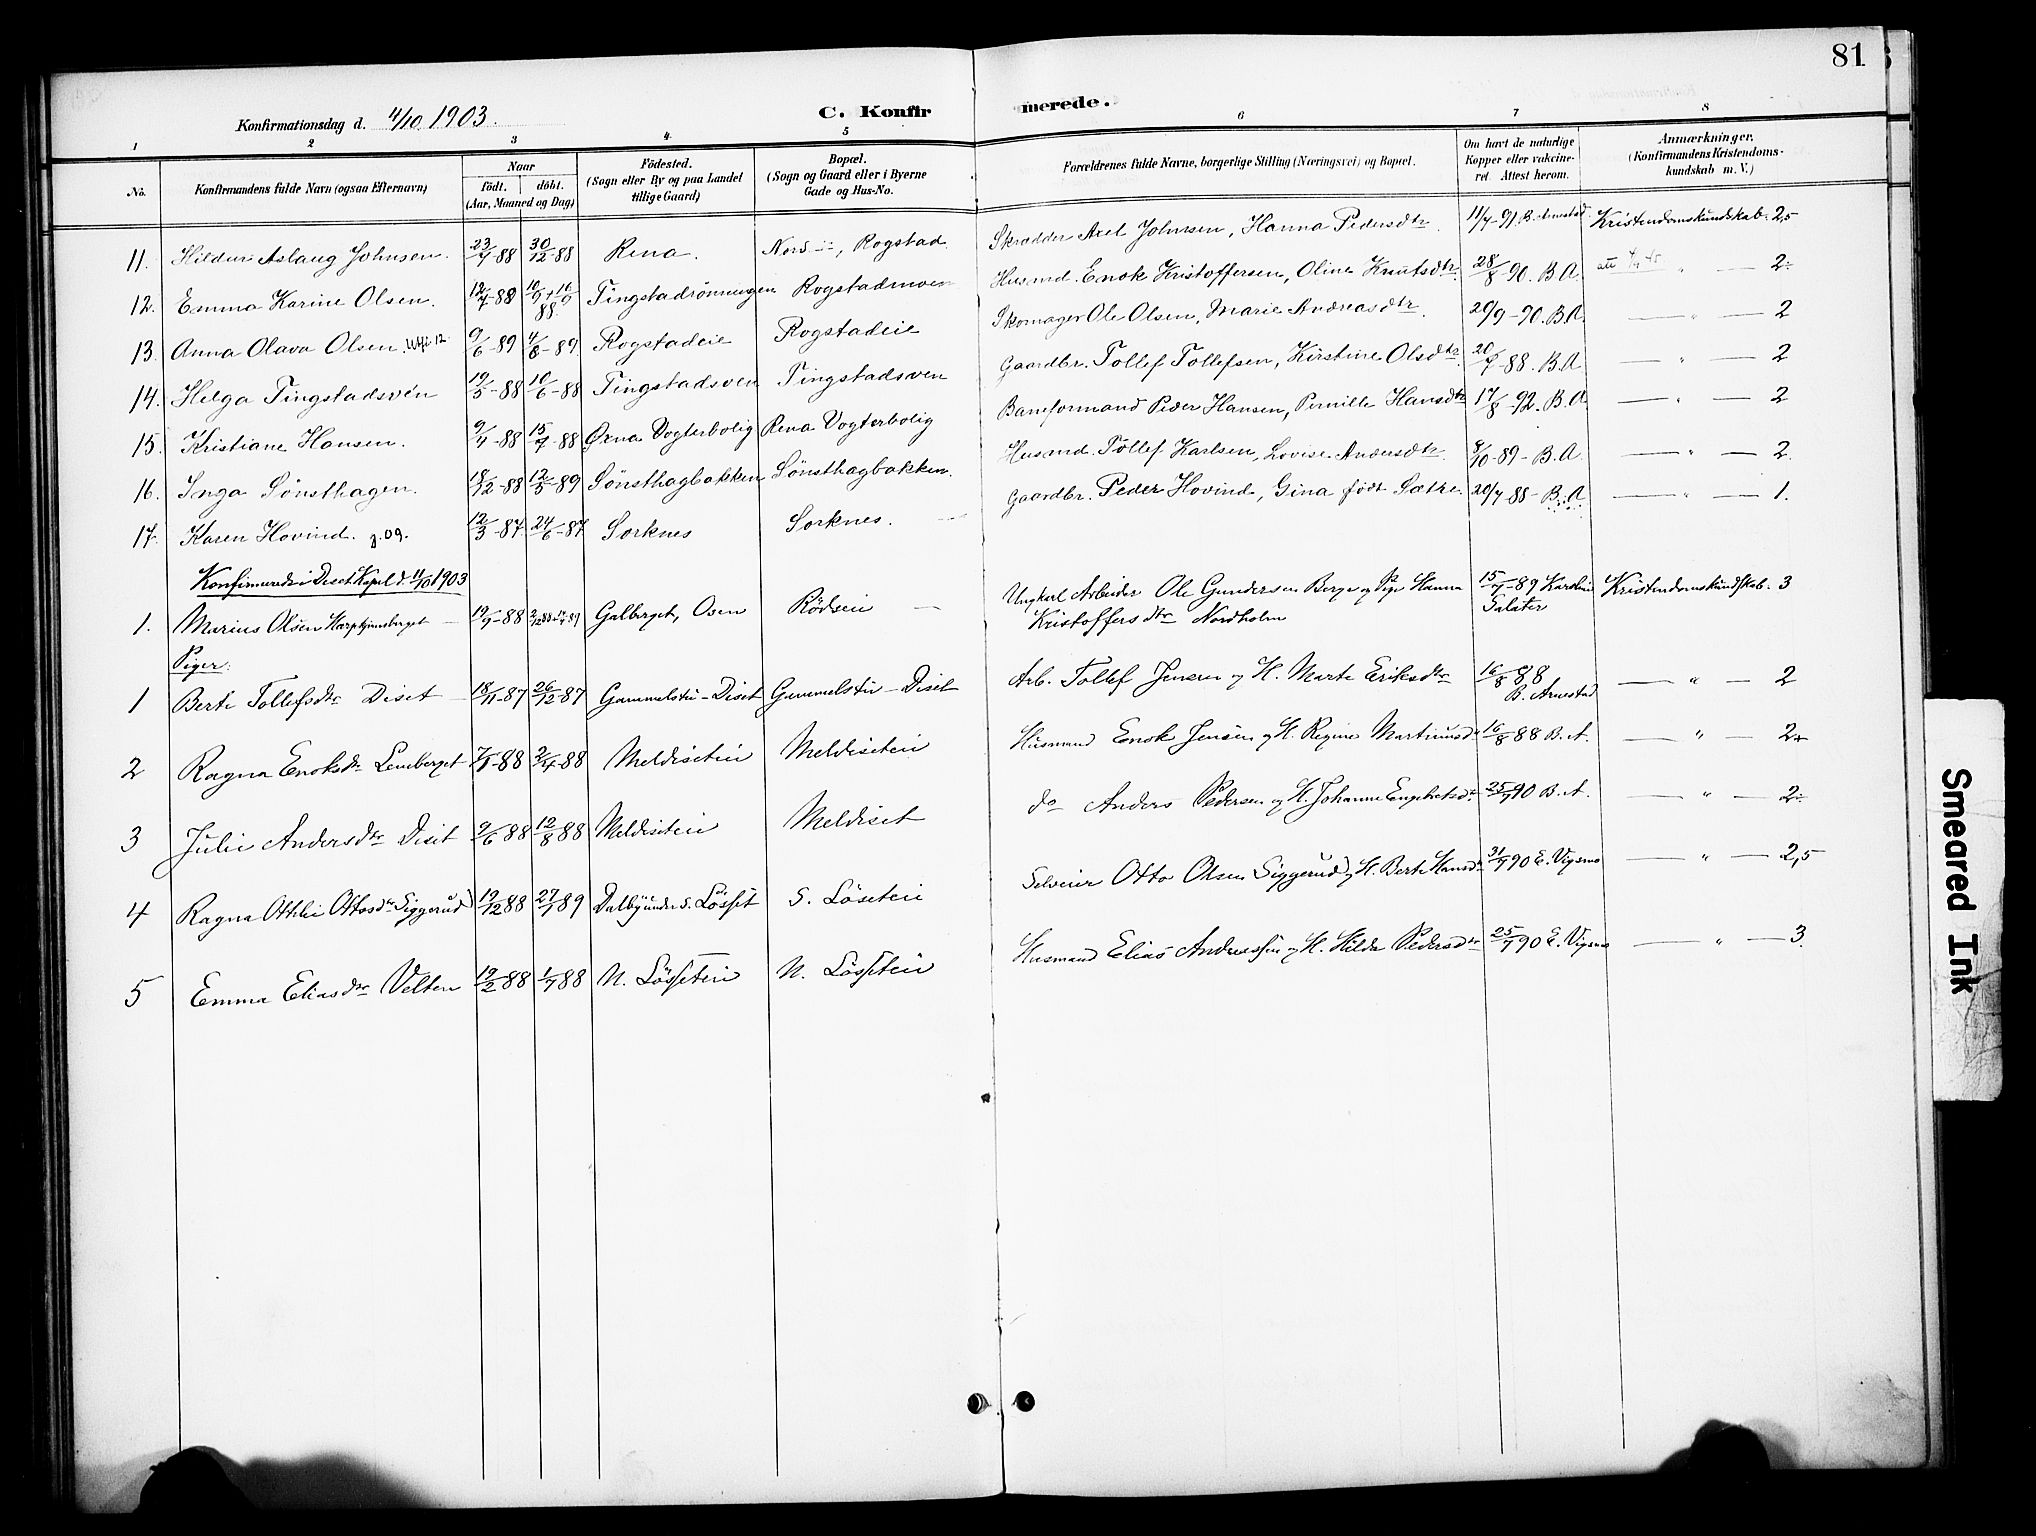 81
Konfirmationsdag d. 4/10 1903.
C. Konfirmerede.
1 2 3 4 5 6 7 8
No. Konfirmandens fulde Navn (ogsaa Efternavn) Naar födt. döbt. (Aar, Maaned og Dag) Födested. (Sogn eller By og paa Landet tillige Gaard) Bopæl. (Sogn og Gaard eller i Byerne Gade og Hus-No. Forældrenes fulde Navne, borgerlige Stilling (Næringsvei) og Bopæl. Om havt de naturlige Kopper eller vakcineret. Attest herom. Anmærkninger. (Konfirmandens Kristendomskundskab m. V.)
11. Hildur Aslaug Johnsen. 23/7-88 30/12-88 Rena. Nord , Rogstad Skrædder Axel Johnsen, Hanna Pedersdtr. 11/7-91. B. Arnestad. Kristendomskundskab. 2,5
12. Emma Karine Olsen. 12/7-88 10/9+16/9 88 Tingstadrönningen Rogstadmoen Husmd. Enok Kristoffersen, Oline Knutsdtr. 28/8-90. B.A. att — " — 2÷
13. Anna Olava Olsen. 9/6-89 4/8-89. Rogstadeie Rogstadeie Skomager Ole Olsen, Marie Andreasdtr. 20/9-90. B.A. — " — 2
14. Helga Tingstadsvén 19/5-88 10/6-88 Tingstadsven Tingstadsven Gaardbr. Tollef Tollefsen, Kirstine Olsdtr. 20/7-88. B.A — " — 2
15. Kristiane Hansen. 9/4-88 15/7-88 Örna Vogterbolig Rena Vogterbolig Baneformand Peder Hansen, Pernille Hansdtr 17/8-92. B.A. — " — 2
16. Inga Sönsthagen. 18/12-88 12/5-89 Sönsthagbakken Sönsthagbakken. Husmd. Tollef Karlsen, Lovise Andersdtr. 8/10-89- B.A. — " — 2.
17. Karen Hovind. g. 09. 12/3-87. 24/6-87 Sorknes Sorknes. Gaardbr. Peder Hovind, Gina födt Sætre. 20/7-88- B.A. — " — 1.
Konfirmerede i Deset Kapel d. 11/10 1903
1. Marius Olsen Harptjernsberget 19/9-88 Galberget, Osen Rödseie Ungkarl Arbeider Ole Gundersen Berge og Pige Hanna Kristoffersdtr Nordholm 15/7-89 Karoline Galåter Kristendomskundskab. 3
Piger:
1 Berte Tollefsdtr Diset 18/11-87 26/12-87 Gammelstu-Diset Gammelstu-Diset Arb. Tollef Jensen og H. Marte Eriksdtr 16/8 88 B. Arnestad — " — 2
2 Ragna Enoksdtr Lemberget 7/1-88 2/4-88 Meldiseteie Meldiseteie Husmand Enok Jensen og H. Regine Martinusd. 16/8 88 B.A. — " — 2+
3 Julie Andersdtr Diset 9/6 88 12/8 88 Meldiseteie Meldiset do Anders Pedersen og H. Johanne Engebretsdtr 25/7 90 B.A. — " — 2÷
4 Ragna Othlie Ottosdtr Siggerud 19/12 88 27/1 89 Dalby under S. Lösset S. Löseteie Selveier Otto Olsen Siggerud og H. Berte Hansdtr 31/7 90 E. Vigsmo — " — 2,5
5 Emma Eliasdtr Velten 19/2 88 1/7 88 N. Lösseteie N. Lösseteie Husmand Elias Andreassen og H. Hilda Pedersdtr 25/7 90 E. Vigsmo — " — 3.
Smeared Ink